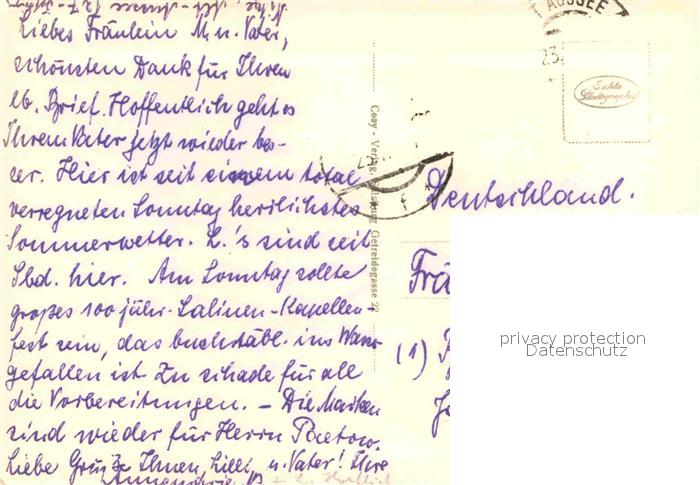 Liebes Fräulein M. u. Vater,
schönsten Dank für Ihren
lb. Brief. Hoffentlich geht es
Ihrem Vater jetzt wieder bes-
ser. Hier ist seit einem total
verregneten Sonntag herrlichstes
Sommerwetter. L.'s sind seit
Sbd. hier. Am Sonntag sollte
großes 100 jähr. Salinen-Kapellen-
fest sein, das buchstäbl. ins Wasser
gefallen ist. Zu schade für all
die Vorbereitungen. – Die Marken
sind wieder für Herrn Paetow.
Liebe Grüße Ihnen, Lilli, u. Vater! Ihre
Cosy - Verlag, Getreidegasse 22
T AUSSEE
23.
Echte
Photographie
Deutschland.
Frä
(1)
privacy protection
Datenschutz